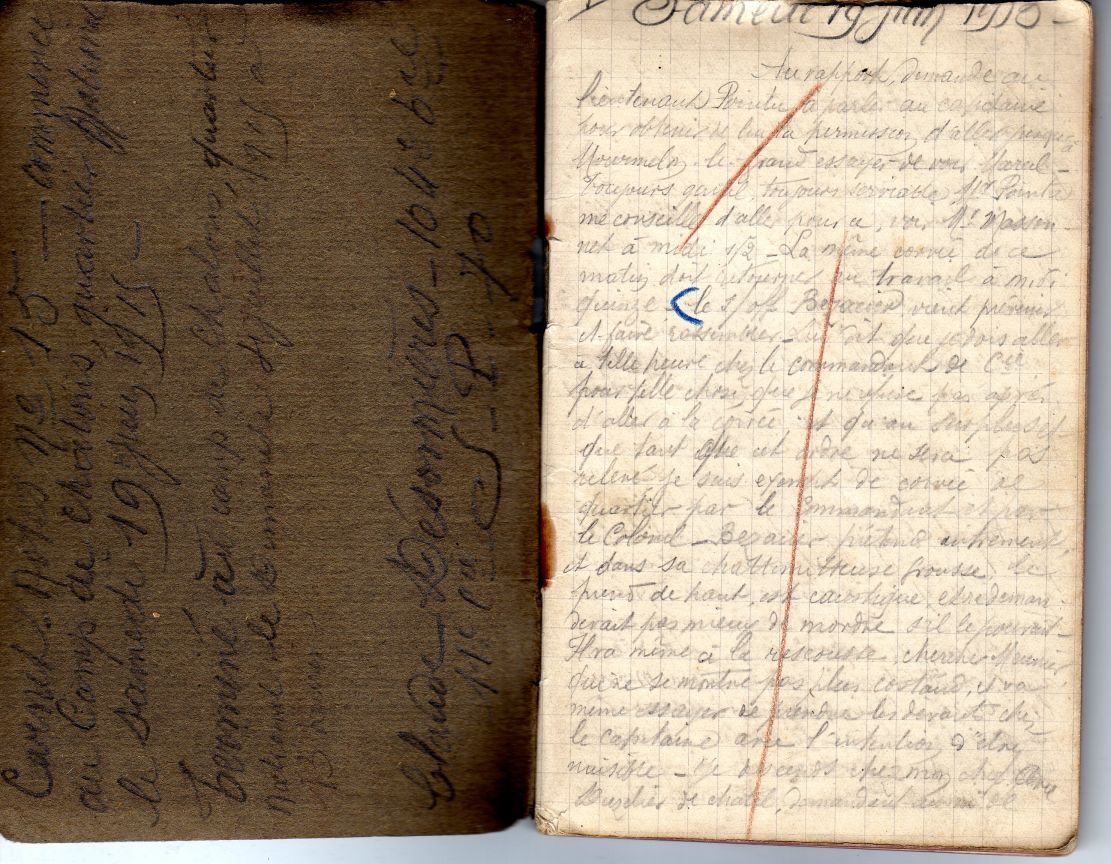 Carnet: Notes N° 15 — commencé
au Camp de Châlons, quartier National
le samedi 19 juin 1915 —
Terminé au camp de Châlons, quartier
National le Dimanche
Claude Désormières — 104e bie
111e
Samedi 19 juin 1915 —
Au rapport, demande au
lieutenant Pointu à parler au capitaine
pour obtenir de lui la permission d'aller jusqu'à
Mourmelon le grand essayer de voir Marcel —
Toujours gentil, toujours serviable Mr Pointu
me conseille d'aller pour ça, voir Mr Masson
net à midi 1/2 — La même corvée de ce
matin doit retourner au travail à midi
quinze — le s/off Bezacier vient prévenir
et faire rassembler — Lui dit que je dois aller
à telle heure chez le commandant de Cie
pour telle chose, que je ne refuse pas après
d'aller à la corvée et qu'au surplus et
que tant que cet ordre ne sera pas
relevé je suis exempt de corvée de
quartier par le Commandant et par
le Colonel — Bezacier prétend autrement,
et dans sa chattemitteuse frousse le
prend de haut, est caustique, et ne deman
derait pas mieux de mordre s'il le pouvait —
Il va même à la rescousse, chercher Meunier
qui ne se montre pas plus costaud, il va
même essayer de prendre les devants chez
le capitaine avec l'intention d'être
nuisible — Je descends chez mon chef
de demandant avant de